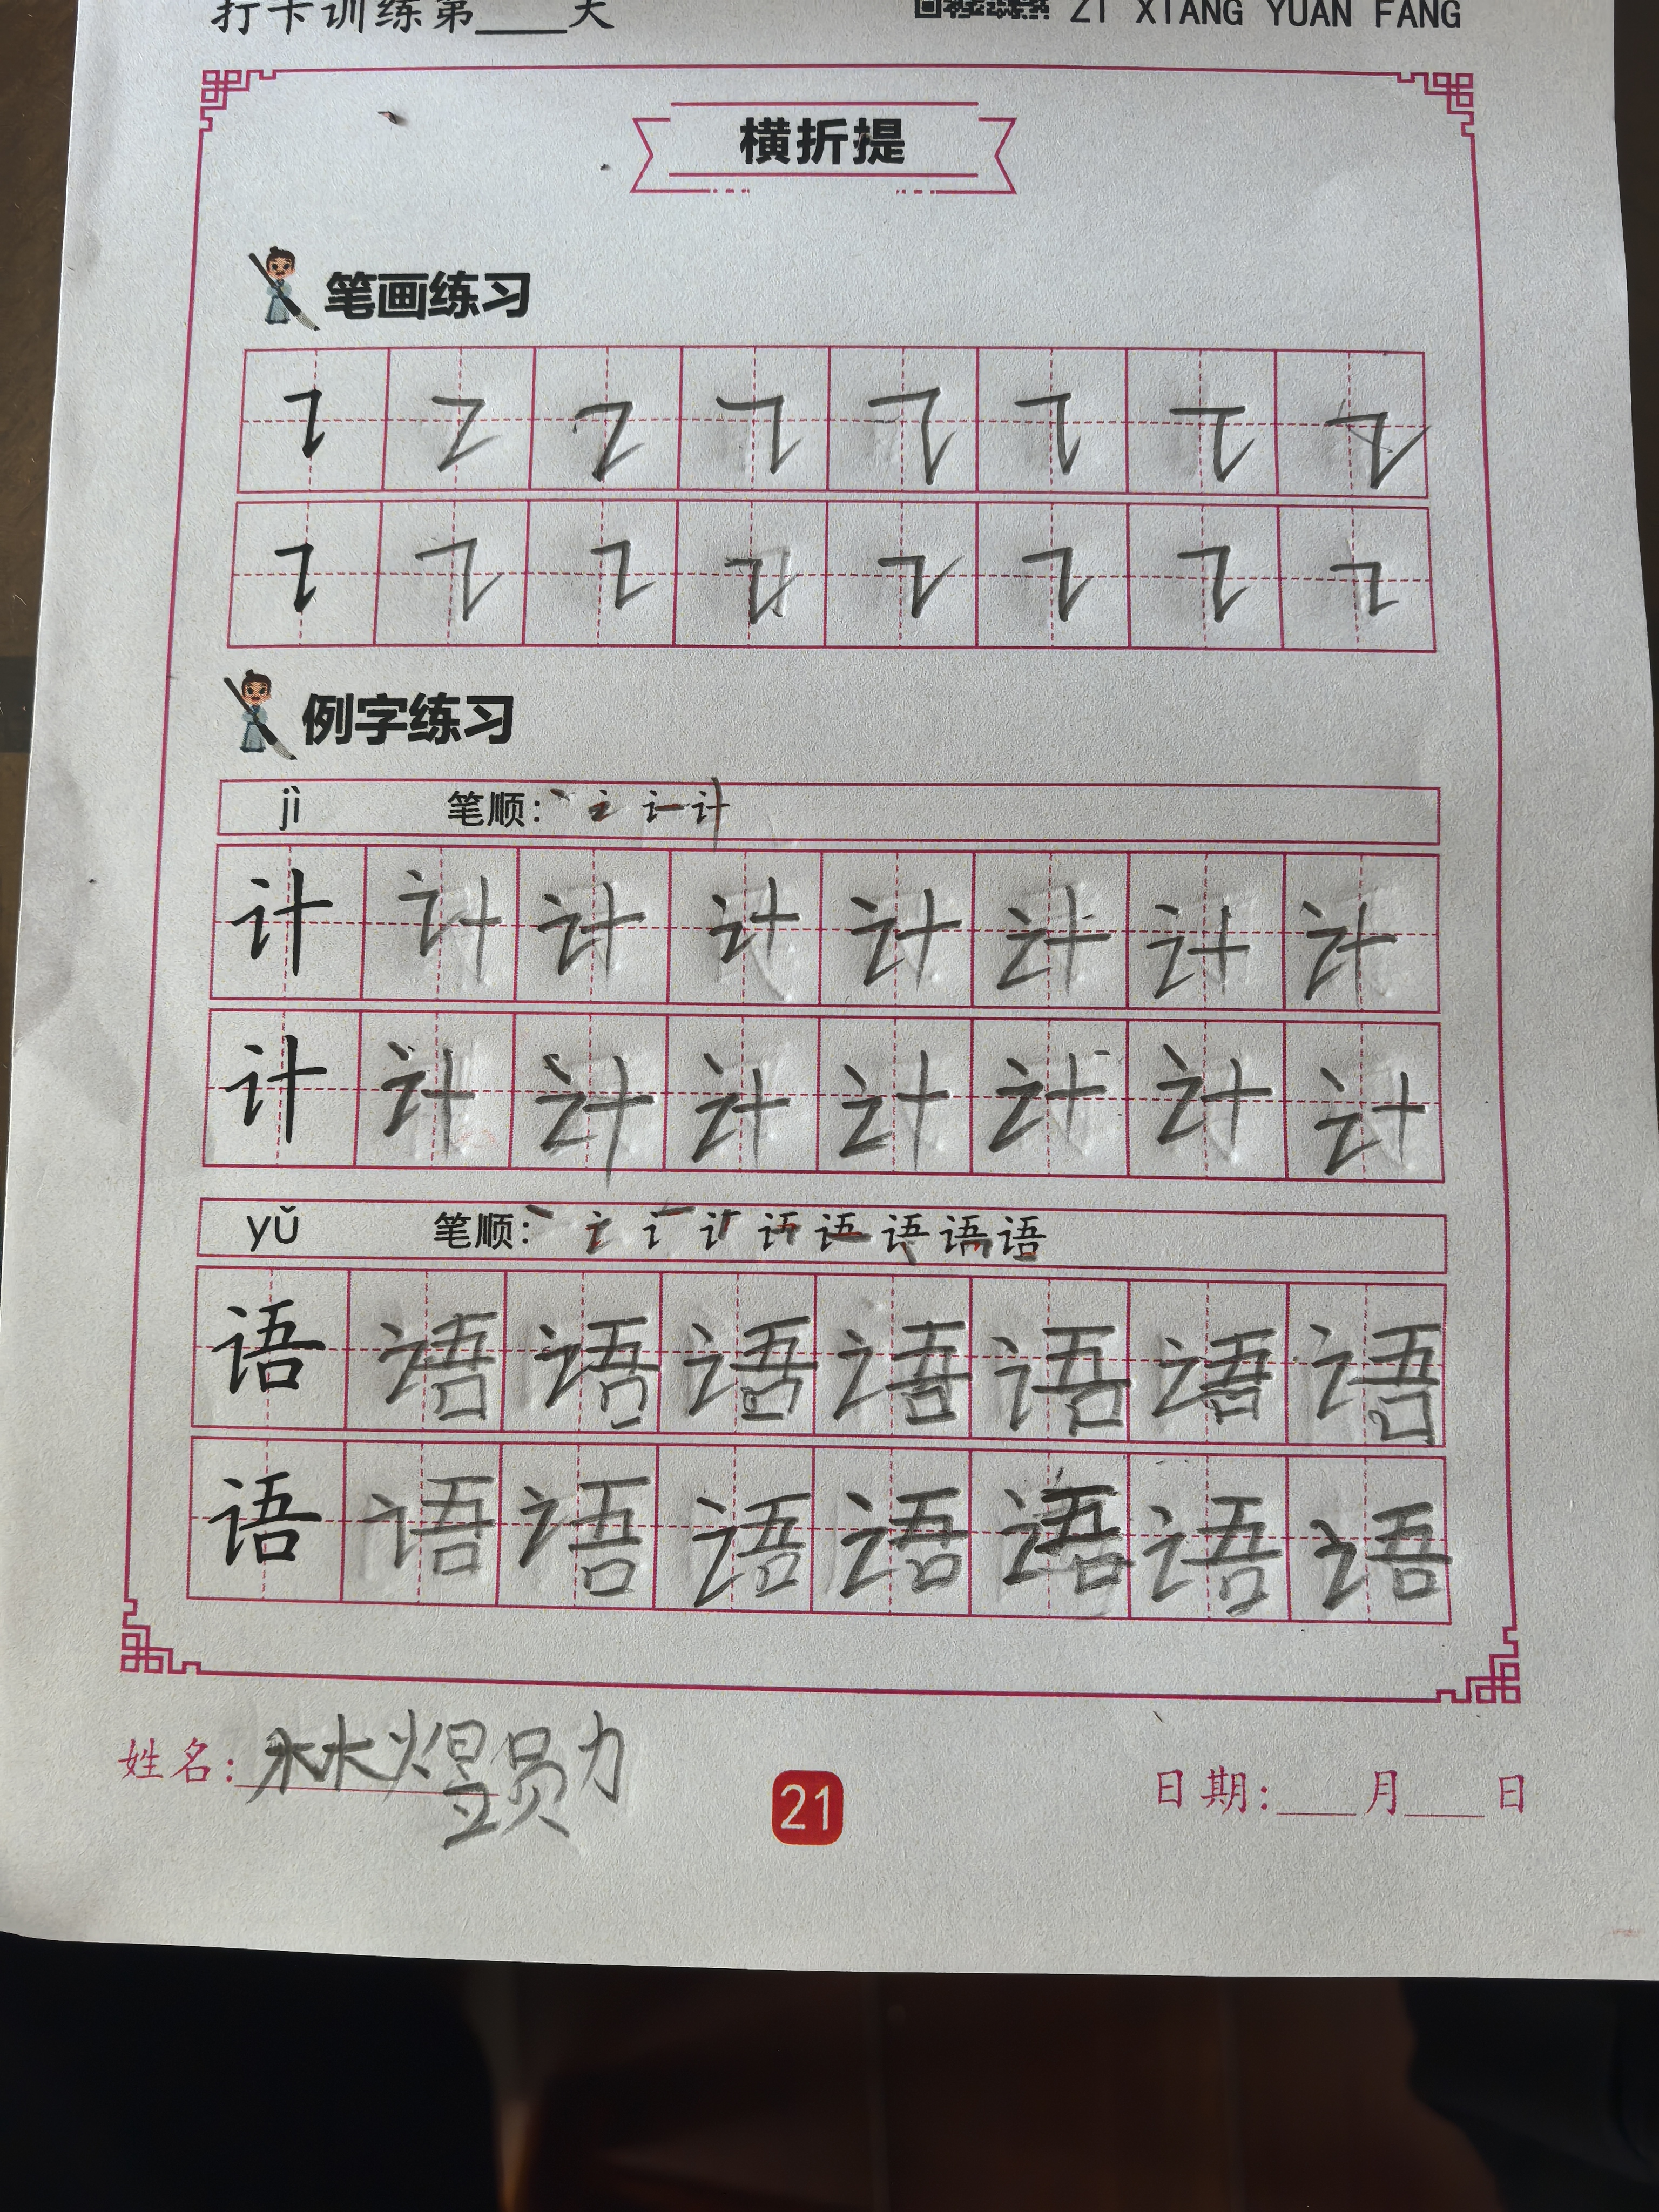 打卡训练第____天 ZI XIANG YUAN FANG
横折提
笔画练习
例字练习
jì 笔顺：
计 计 计 计 计 计 计 计
计 计 计 计 计 计 计 计
yǔ 笔顺：
语 语 语 语 语 语 语 语
语 语 语 语 语 语 语 语
姓名：
21
日期：___月___日